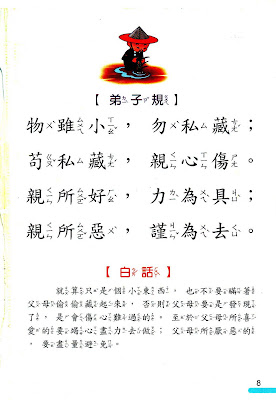 【弟子規】
物雖小,勿私藏;
苟私藏,親心傷。
親所好,力為具;
親所惡,謹為去。
【白話】
就算只是個小東西,也不要瞞著
父母偷偷藏起來,否則父母要是發現
了,是會傷心難過的。至於父母所喜
愛的要竭心盡力去做;父母所厭惡的
,要盡量避免。
8